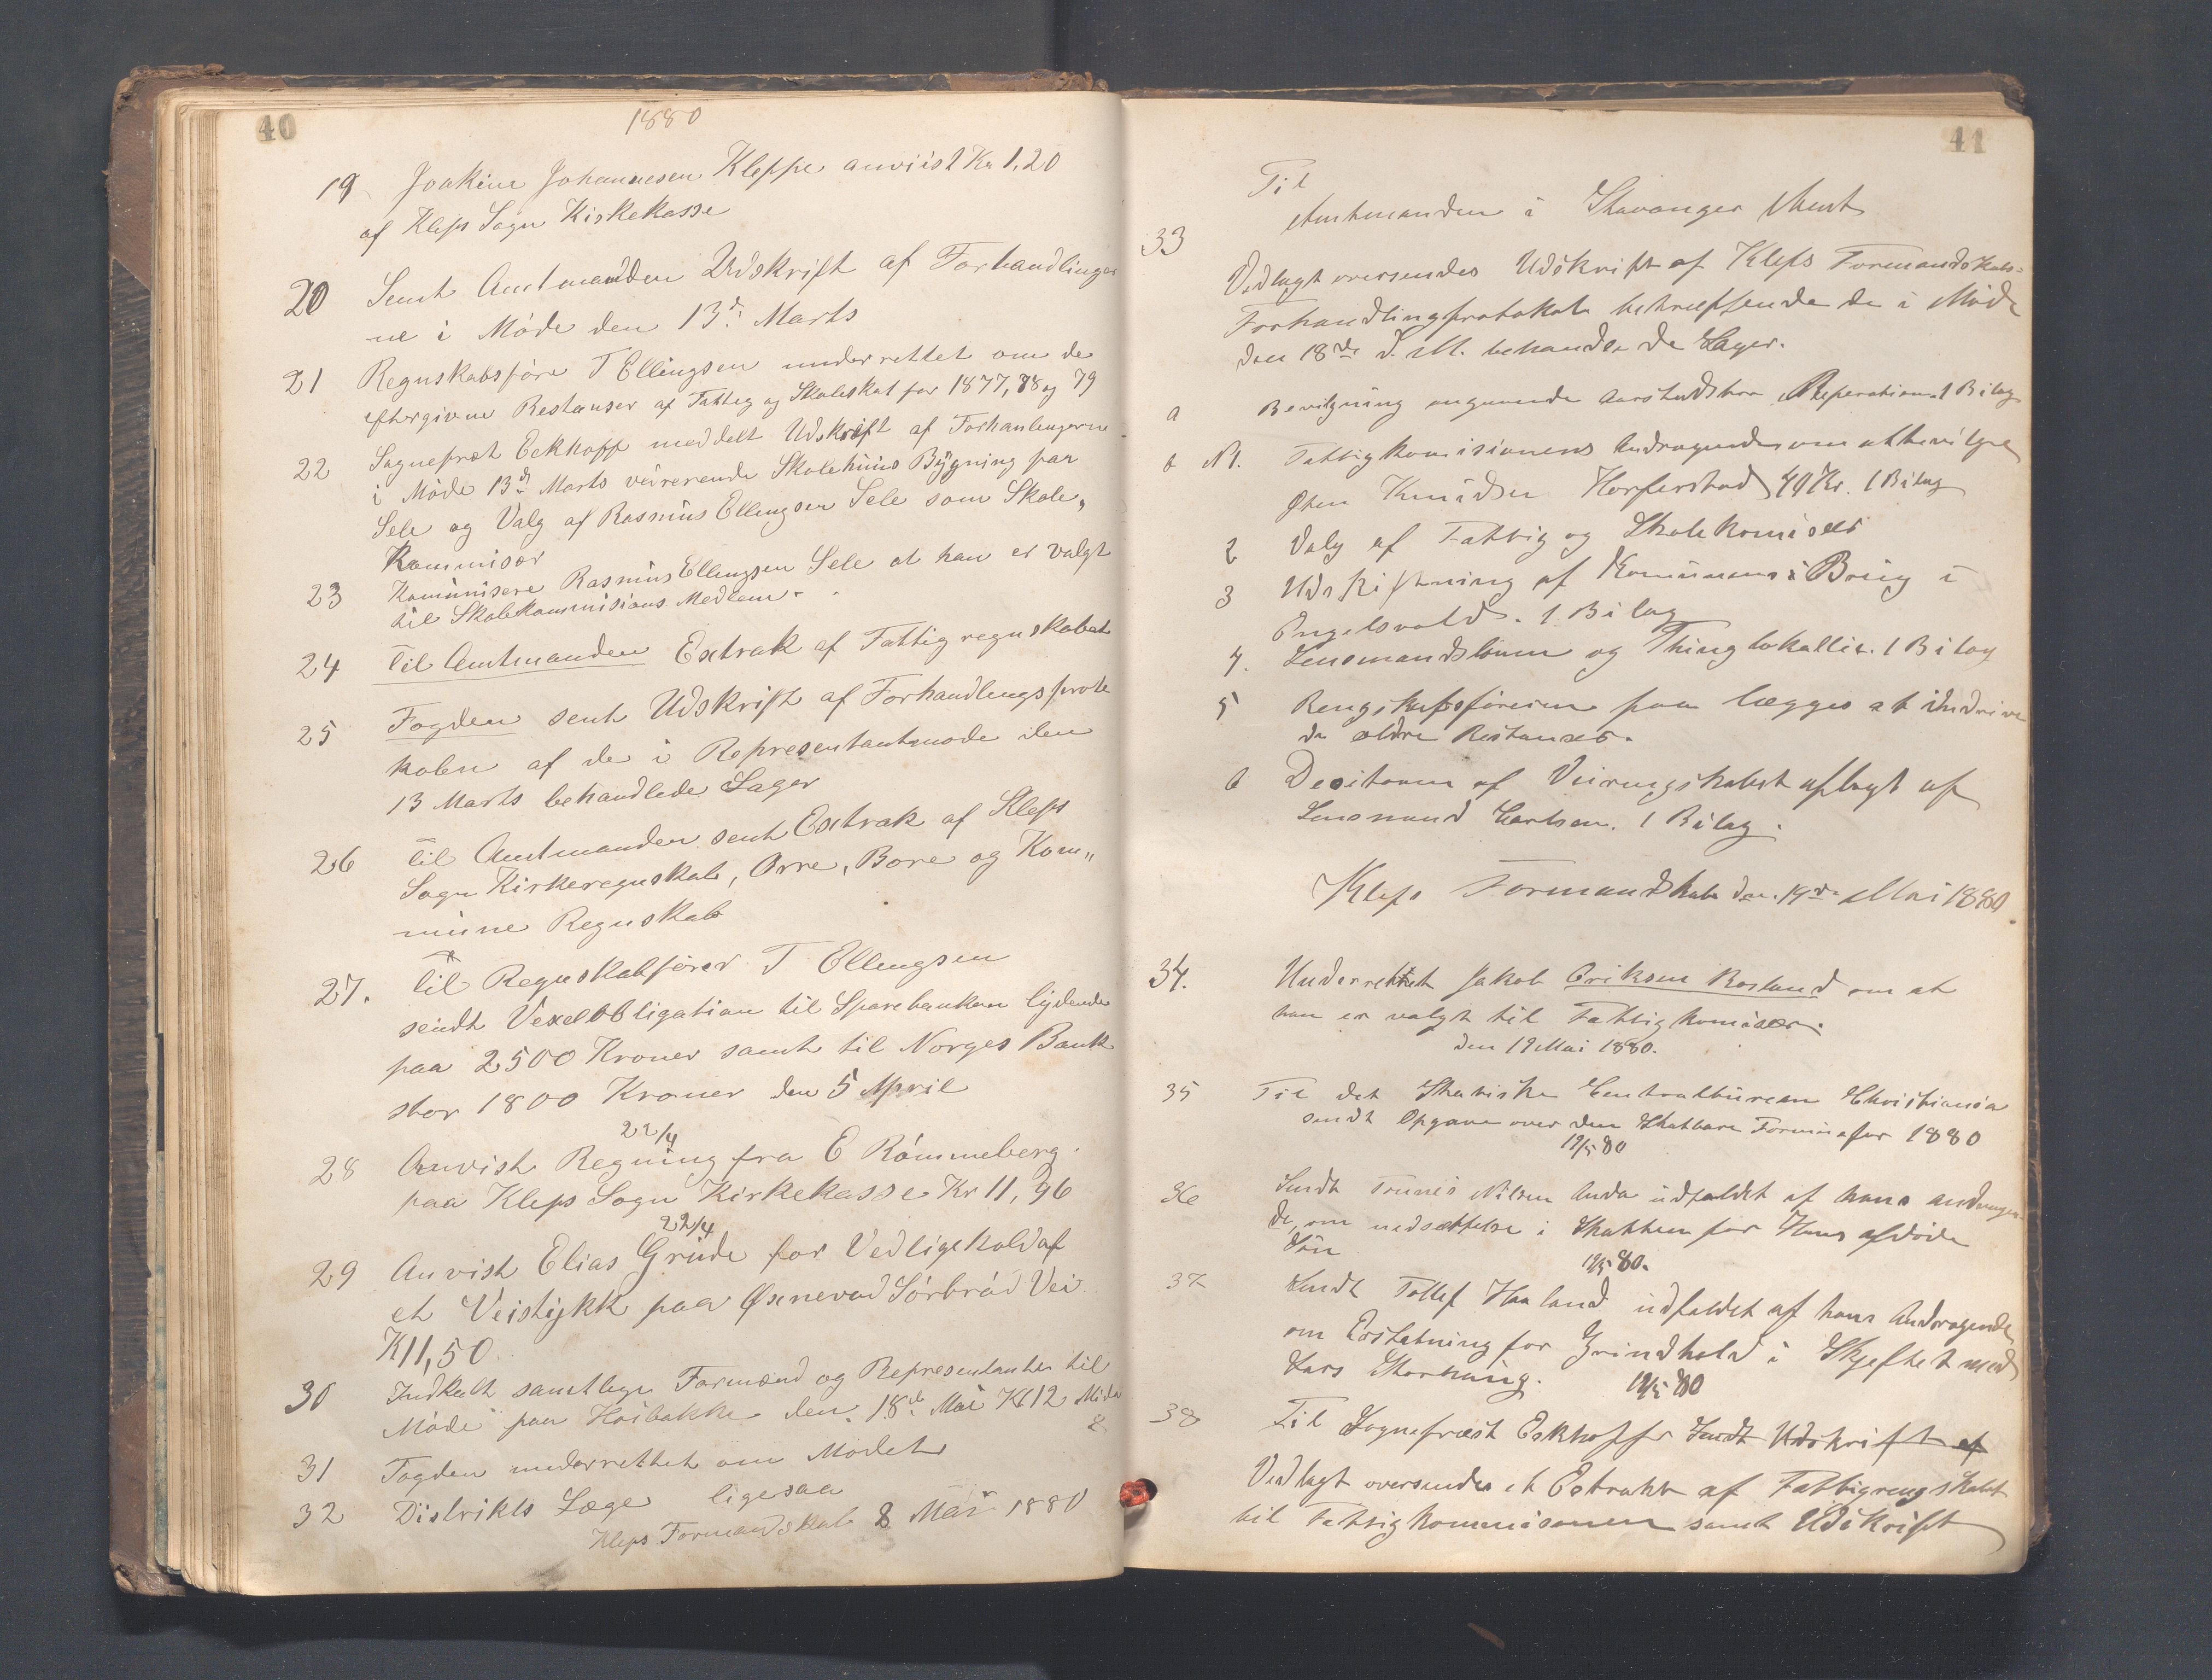 40
1880
19 Joakim Johannesen Kleppe anviist Kr 1,20
af Kleps Sogn Kirkekasse
20 Sent Amtmanden Udskrift af Forhandlinger
ne i Möde den 13d. Marts
21 Regnskabsförer T Ellingsen underrettet om de
eftergivne Restanser af Fattig og Skoleskat for 1877, 78 og 79
22 Sognepræst Eckhoff meddelt Udskrift af Forhanlingerne
i Möde 13d. Marts vedrørende Skolehuus Bygning paa
Sele og Valg af Rasmus Ellingsen Sele som Skole„
Kommisær
23 Komunisere Rasmus Ellingsen Sele at han er valgt
til Skolekommisions Medlem
24 Til Amtmanden Extrak af Fattigregnskabet
25 Fogden sent Udskrift af Forhandlingsproto
kolen af de i Representantmode den
13 Marts behandlede Sager
26 Til Amtmanden sent Extrak af Kleps
Sogn Kirkeregnskab, Orre, Bore og Kom„
mune Regnskab
27. Til Regnskabförer T Ellingsen
sendt Vexelobligation til Sparebanken lydende
paa 2500 Kroner samt til Norges Bank
stor 1800 Kroner den 5 April
22/4
28 Anvist Regning fra E Römmeberg
paa Kleps Sogn Kirkekasse Kr 11,96
22/4
29 Anvist Elias Grude for Vedligehold af
et Veistykk paa Øxnevad Sörbröd Vei
K11,50
30 Indkalt samtlige Formænd og Representanter til
Möde paa Höibakke den 18d. Mai Kl 12 Mida
31 Fogden underrettet om Mödet
32 Distrikts Læge ligesaa
Kleps Formandskab 8 Mai 1880
41
Til
Amtmanden i Stavanger Amt
33
Vedlagt oversendes Udskrift af Kleps Formandskabs-
Forhandlingsprotokol betræffende de i Möde
den 18de d. M. behandlede Sager.
a Bevilgning angaaende Aarstadsbro Reperation. 1 Bilag
b Fattigkomisionens Andragende om at bevilge
Knudsen 40 Kr. 1 Bilag
2 Valg af Fattig og Skolekomisær
3 Udskiftning af Komunens Brug i
Engelsvold. 1 Bilag
4. Lensmandslönn og Thinglokaller. 1 Bilag
5 Rengskapsföreren paa lægges at inddrive
de ældre Restanser.
6 Desitonen af Veirengskabet aflagt af
Lensmand Carlsen. 1 Bilag.
Kleps Formandskab den 19de Mai 1880
34. Underrettet Jakob Eriksen Rosland om at
han er valgt til Fattigkomisær.
den 19 Mai 1880.
35 Til det Statiske Centralbureau Christiania
sendt Opgave over den Skatbare Formue for 1880
19/5 80
36 Sendt Tönnes Nilsen Anda udfaldet af hans andragen-
de, om nedsættelse i Skatten for Hans afdöde
Sön
19/5 80.
37 Sendt Tollef Haaland udfaldet af hans Andragende
om Erstatning for Grindhold i Skjeftet med
Lars Storhaug. 19/5 80
38 Til Sognepræst Eckhoff Sendt Udskrift af
Vedlagt oversendes et Estrakt af Fattigrengskabet
til Fattigkommisonen samt Udskrift